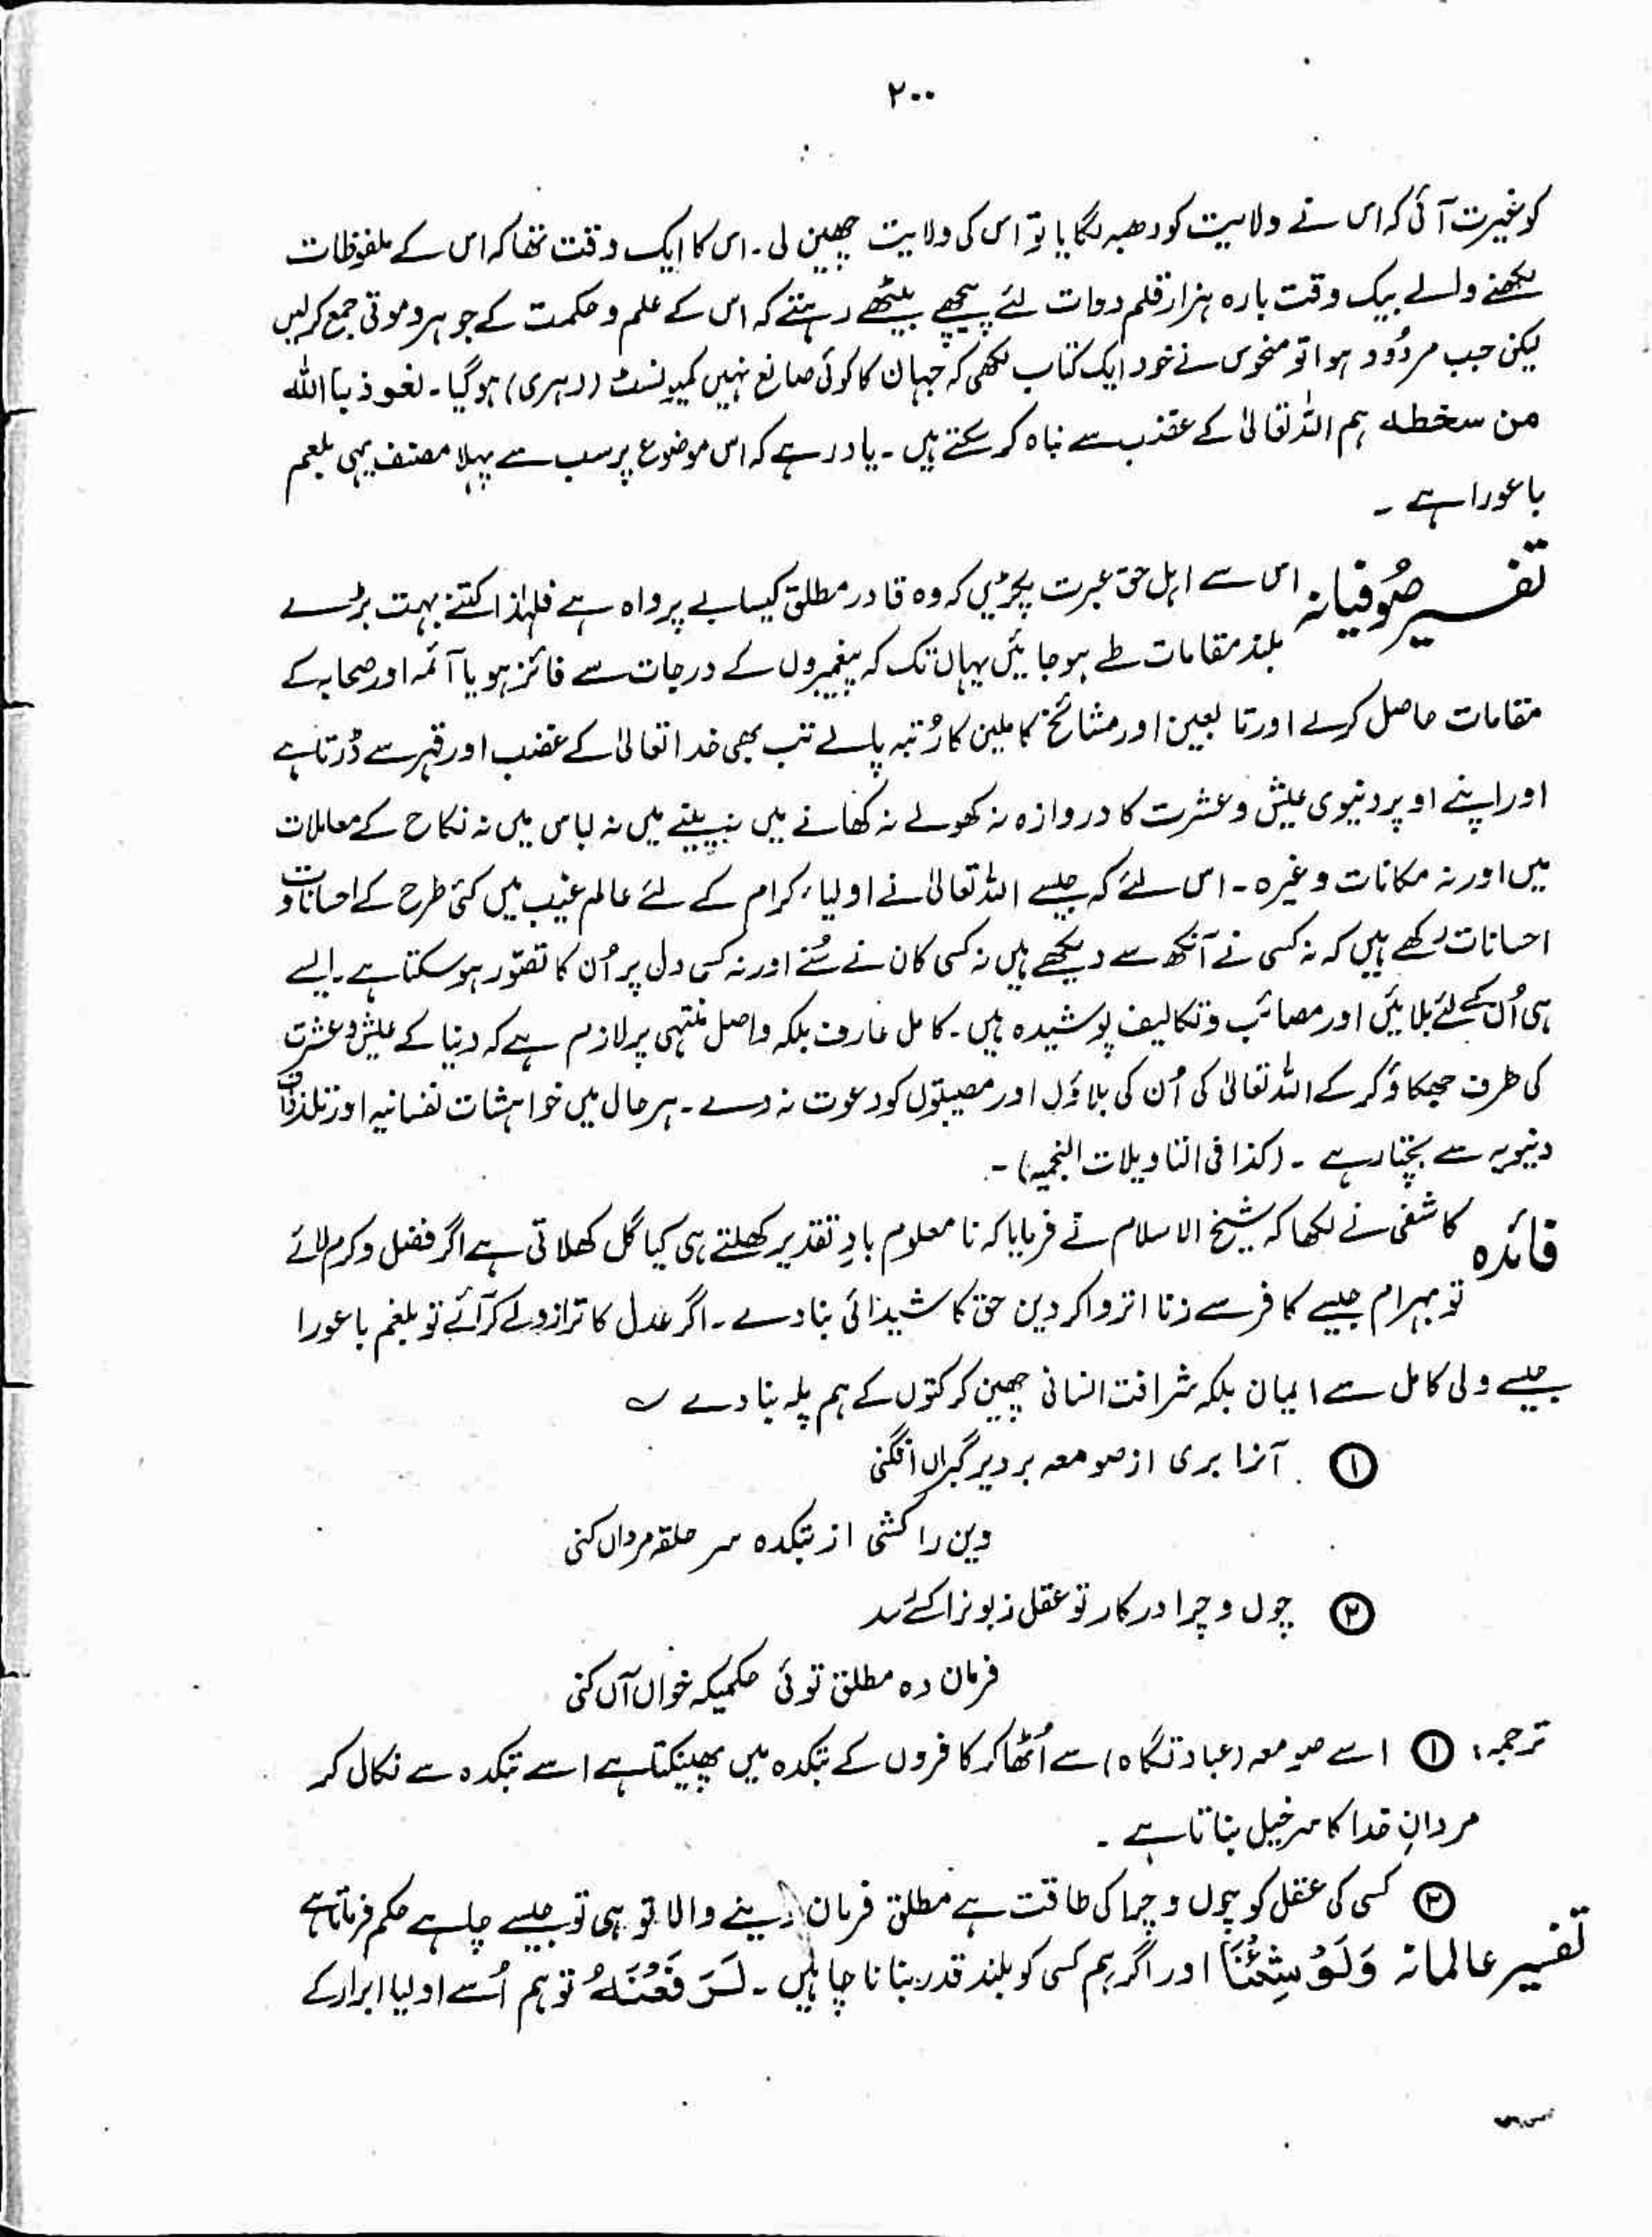 ۲۰۰
کو غیرت آئی کہ اس نے ولایت کو دھبہ لگایا تو اس کی ولایت چھین لی۔ اس کا ایک وقت تھا کہ اس کے ملفوظات
لکھنے والے بیک وقت بارہ ہزار قلم دوات لئے پیچھے بیٹھے رہتے کہ اس کے علم و حکمت کے جوہر و موتی جمع کرلیں
لیکن جب مردُود ہوا تو منحوس نے خود ایک کتاب لکھی کہ جہان کا کوئی صانع نہیں کمیونسٹ (دہری) ہوگیا۔ نعوذ باللہ
من سخطہ ہم اللہ تعالیٰ کے غضب سے نباہ کر سکتے ہیں۔ یاد رہے کہ اس موضوع پر سب سے پہلا مصنف یہی بلعم
باعورا ہے ۔
تفسیر صُوفیانہ اس سے اہل حق عبرت پکڑیں کہ وہ قادر مطلق کیسا بے پرواہ ہے فلہٰذا کتنے بہت بڑے
بلند مقامات طے ہو جائیں یہاں تک کہ پیغمبروں کے درجات سے فائز ہو یا آئمہ اور صحابہ کے
مقامات حاصل کرلے اور تابعین اور مشائخ کاملین کا رُتبہ پالے تب بھی خدا تعالیٰ کے غضب اور قہر سے ڈرتا ہے
اور اپنے اوپر دنیوی عیش و عشرت کا دروازہ نہ کھولے نہ کھانے میں نہ پینے میں نہ لباس میں نہ نکاح کے معاملات
میں اور نہ مکانات وغیرہ ۔ اس لئے کہ جیسے اللہ تعالیٰ نے اولیاء کرام کے لئے عالم غیب میں کئی طرح کے احسانات و
احسانات رکھے ہیں کہ نہ کسی نے آنکھ سے دیکھے ہیں نہ کسی کان نے سُنے اور نہ کسی دل پر اُن کا تصوّر ہوسکتا ہے۔ ایسے
ہی اُن کے لئے بلائیں اور مصائب و تکالیف پوشیدہ ہیں۔ کامل عارف بلکہ واصل منتہی پر لازم ہے کہ دنیا کے عیش و عشرت
کی طرف جھکاؤ کرکے اللہ تعالیٰ کی اُن کی بلاؤں اور مصیبتوں کو دعوت نہ دے۔ ہر حال میں خواہشات نفسانیہ اور تلذذات
دنیویہ سے بچتا رہے ۔ (کذا فی التاویلات النجمیہ) ۔
فائدہ کاشفی نے لکھا کہ شیخ الاسلام نے فرمایا کہ نا معلوم بادِ تقدیر کھلتے ہی کیا گل کھلاتی ہے اگر فضل و کرم لائے
تو بہرام جیسے کافر سے زنا اتروا کر دین حق کا شیدائی بنا دے۔ اگر عدل کا ترازو لے کر آئے تو بلغم باعورا
جیسے ولی کامل سے ایمان بلکہ شرافت انسانی چھین کر کتوں کے ہم پلہ بنا دے ؎
① آنرا بری از صومعہ بر دیر گبراں افگنی
وین را کشی از بتکدہ سر حلقہ مرداں کنی
② چوں و چرا در کار تو عقل زبونرا کے سد
فرمان دہ مطلق توئی حکمیکہ خواں آں کنی
ترجمہ: ① اسے صومعہ (عبادتگاہ) سے اُٹھا کر کافروں کے بتکدہ میں پھینکتا ہے اسے بتکدہ سے نکال کر
مردانِ خدا کا سرخیل بناتا ہے ۔
② کسی کی عقل کو چوں و چرا کی طاقت ہے مطلق فرمان دینے والا تو ہی تو جیسے چاہے حکم فرماتا ہے
تفسیر عالمانہ وَلَوْ شِئْنَا اور اگر ہم کسی کو بلند قدر بنانا چاہیں۔ لَرَفَعْنٰہُ تو ہم اُسے اولیا ابرار کے